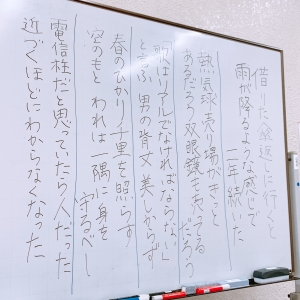 借りた金返しに行くと
雨が降るような感じで
二年続いた
熱気球売り場がきっと
あるだろう双眼鏡もあってる
だろう
「歌はリアルでなければならない」
と言ふ 男の背丈 美しからず
春のひかり千里を照らす
窓のもと われは一隅に身を
守るべし
電信柱だと思っていたら人だった
近づくほどにわからなくなった